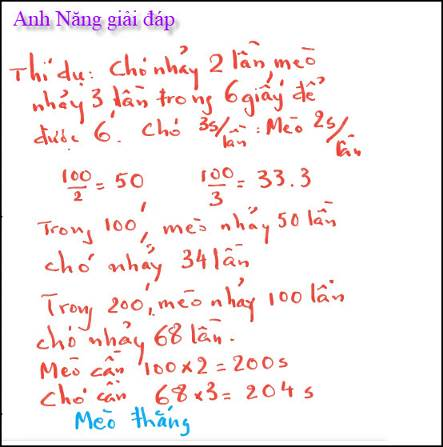 Anh Năng giải đáp
Thí dụ: Chó nhảy 2 lần mèo
nhảy 3 lần trong 6 giấy để
được 6'. Chó 3s/lần: Mèo 2s/lần
100/2 = 50 100/3 = 33.3
Trong 100', mèo nhảy 50 lần
chó nhảy 34 lần
Trong 200', mèo nhảy 100 lần
chó nhảy 68 lần.
Mèo cần 100x2 = 200s
Chó cần 68x3 = 204s
Mèo thắng